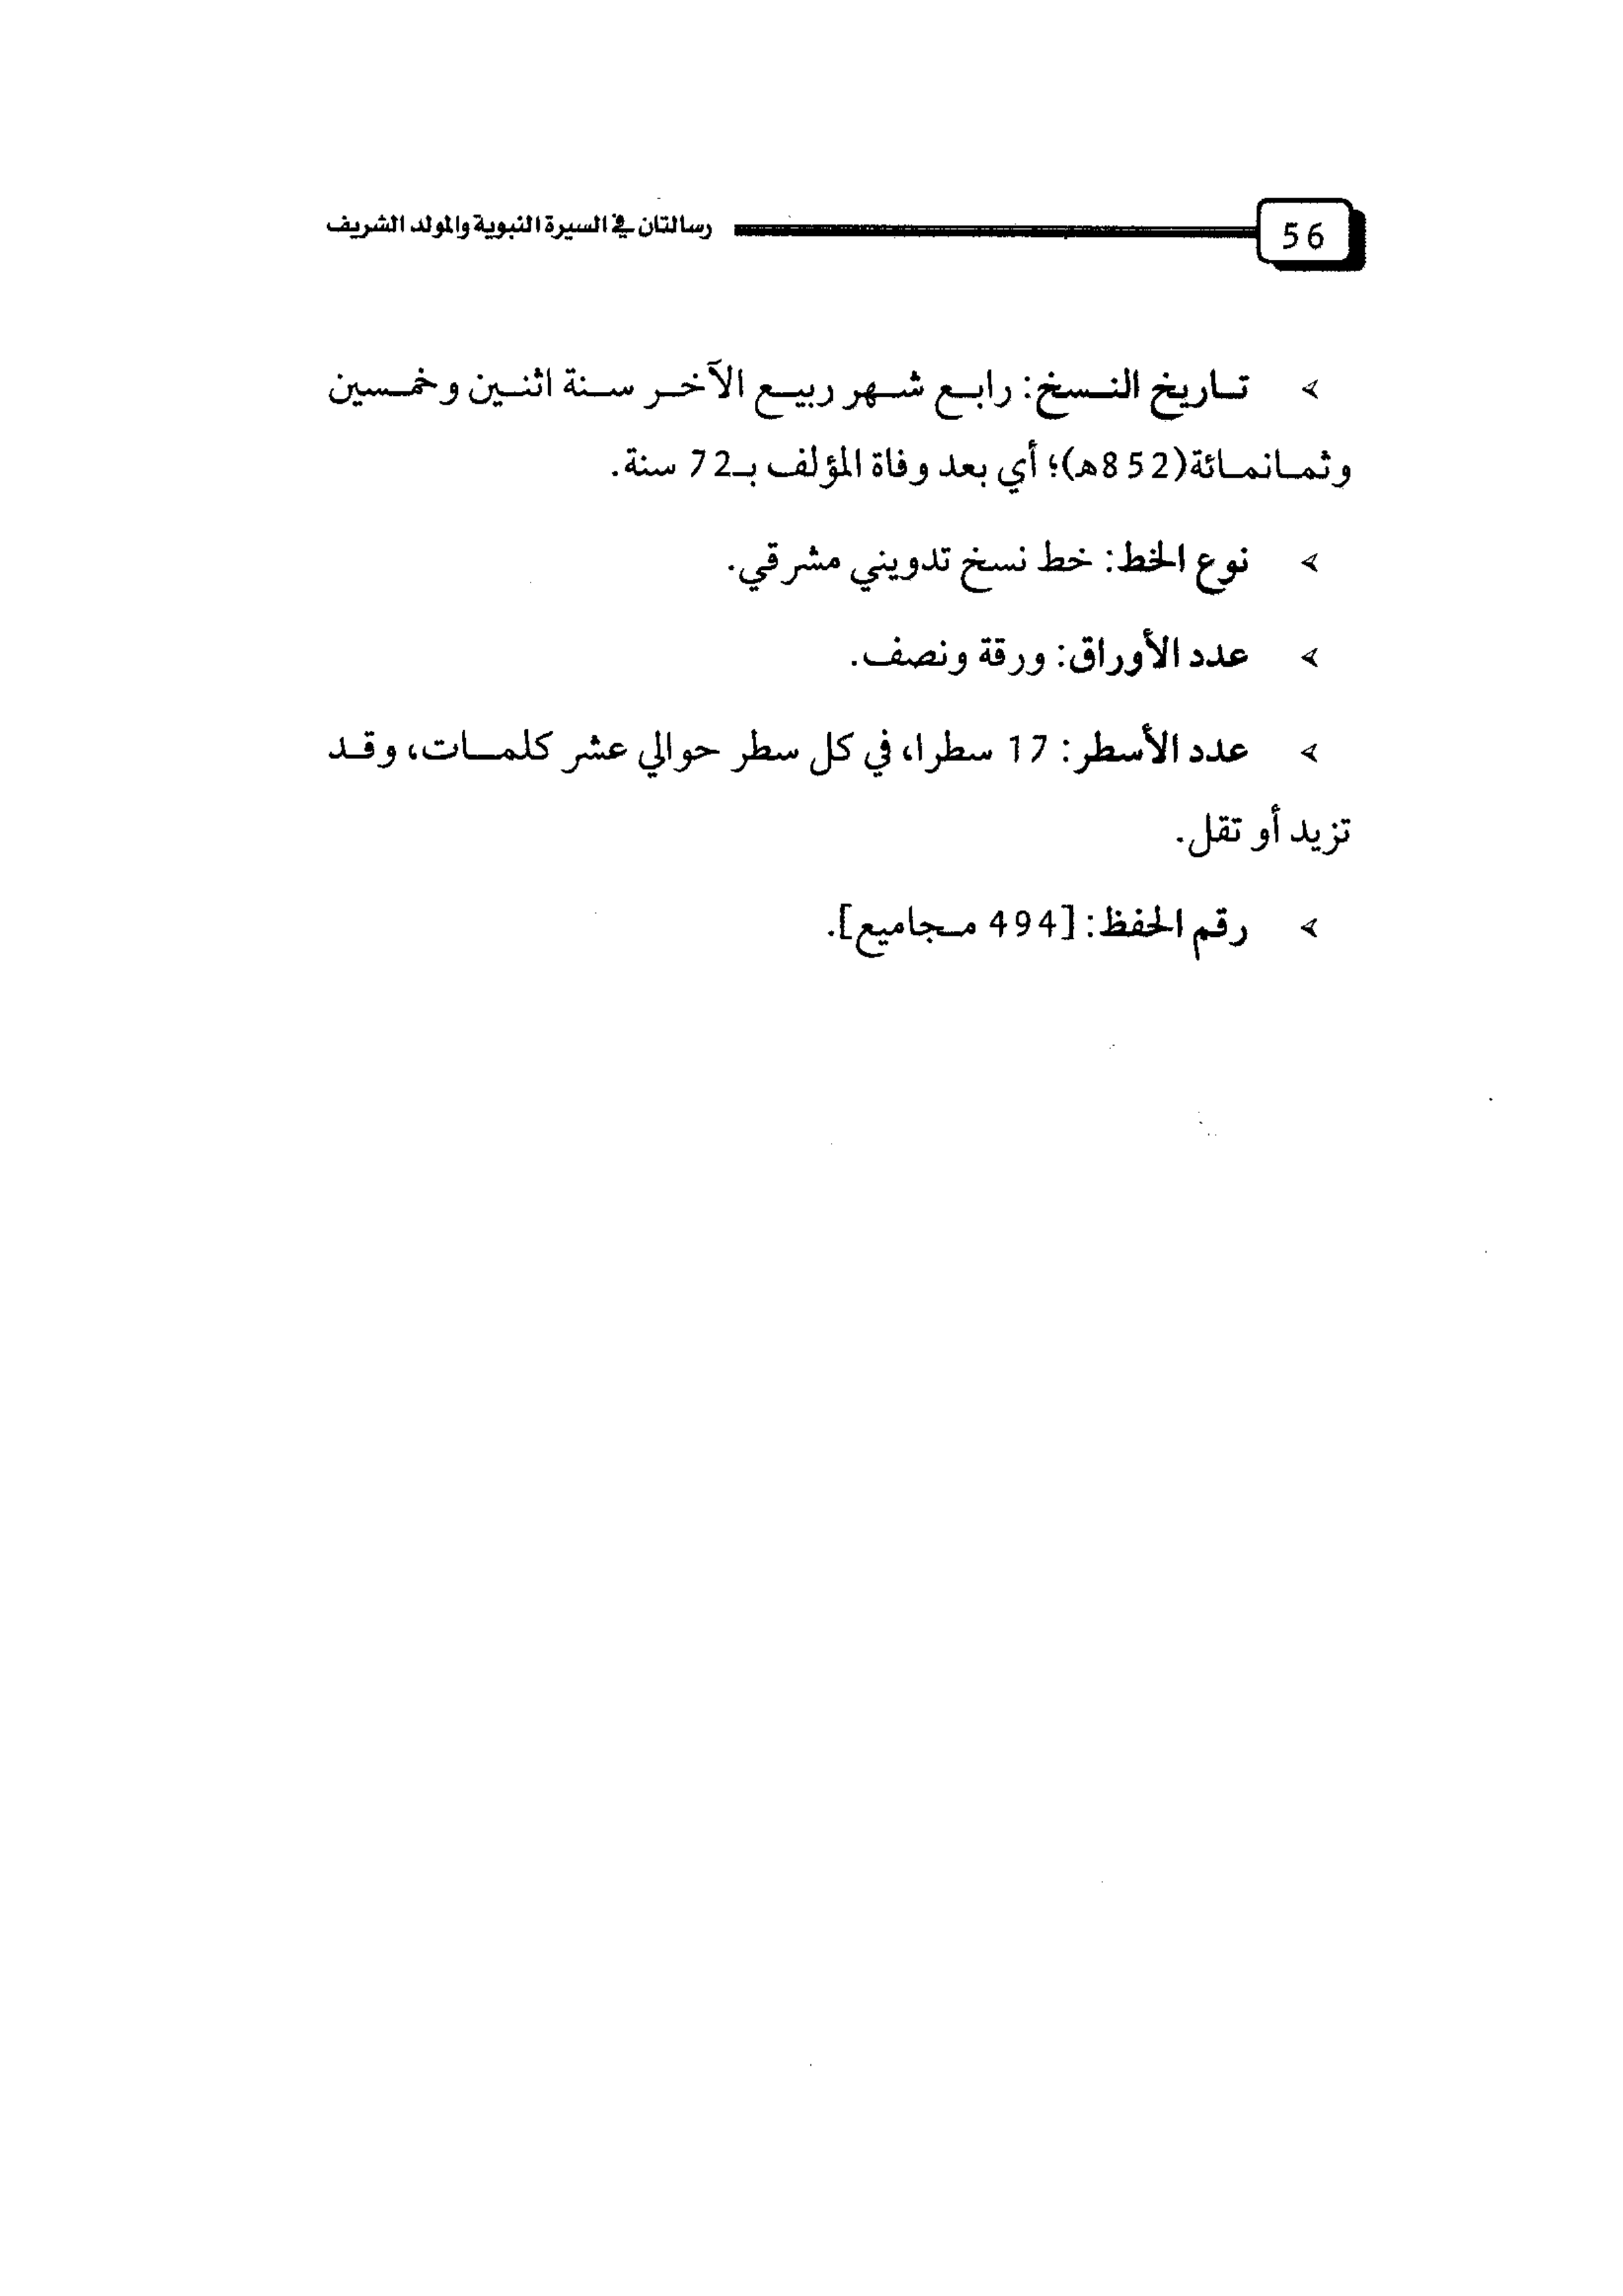 56
رسالتان في السيرة النبوية والمولد الشريف
➢ تاريخ النسخ: رابع شهر ربيع الآخر سنة اثنين وخمسين
وثمانمائة(852هـ)؛ أي بعد وفاة المؤلف بـ72 سنة.
➢ نوع الخط: خط نسخ تدويني مشرقي.
➢ عدد الأوراق: ورقة ونصف.
➢ عدد الأسطر: 17 سطرا، في كل سطر حوالي عشر كلمات، وقد
تزيد أو تقل.
➢ رقم الحفظ: [494 مجاميع].